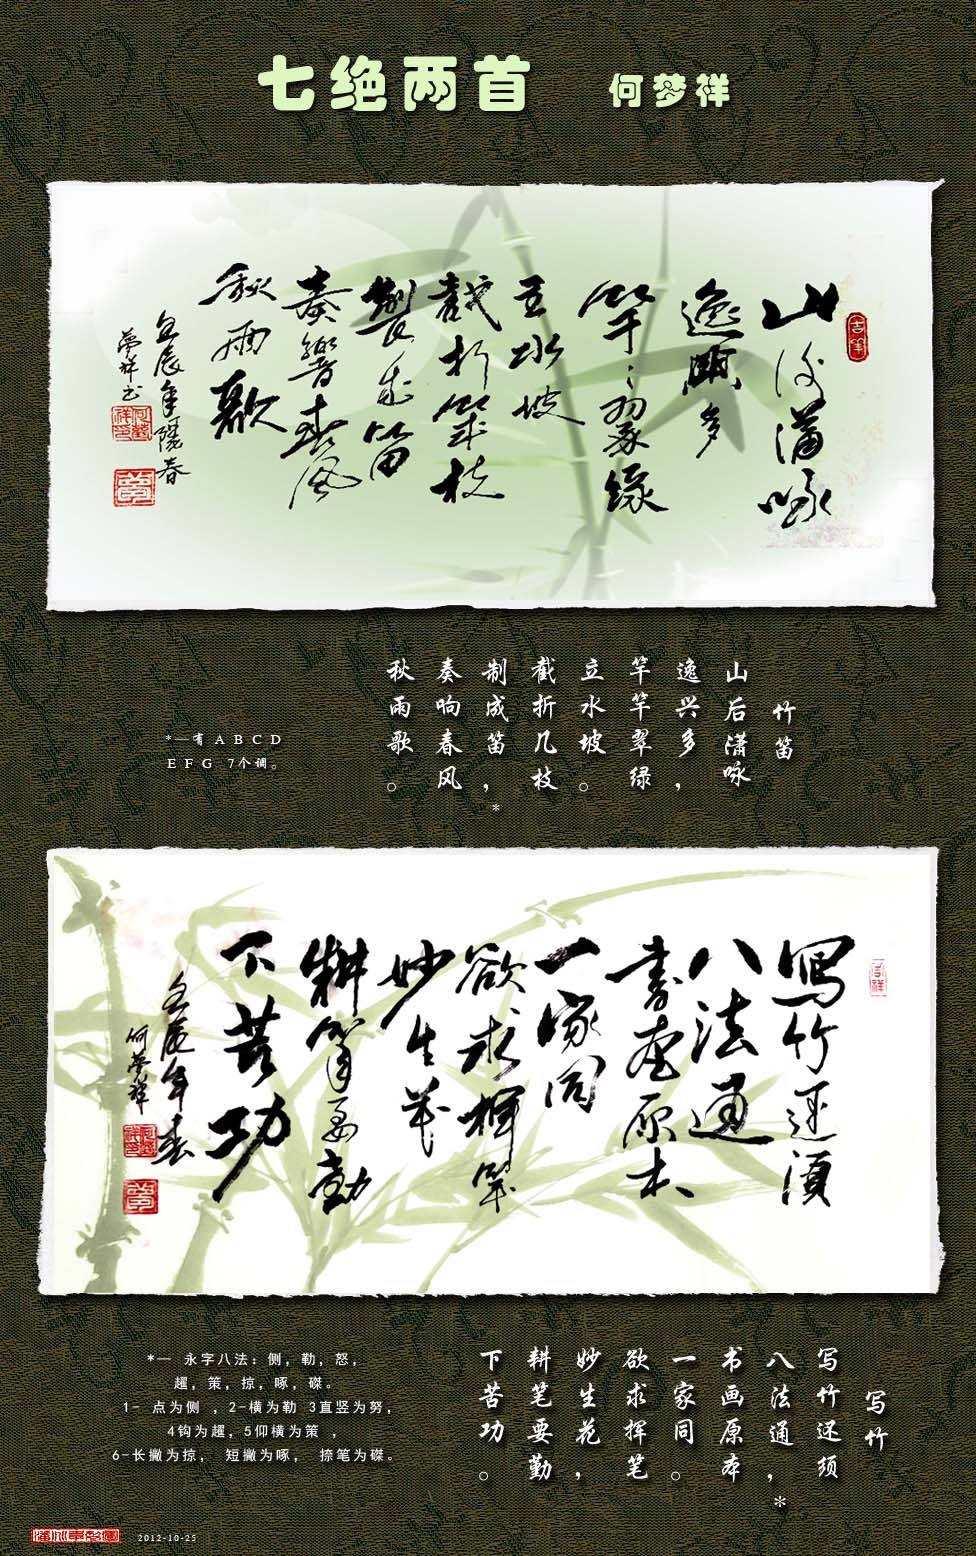 七绝两首 何梦祥
吉祥
山後潇咏
逸興多
竿〻翠緑
立水坡
截折幾枝
製成笛
奏響春風
秋雨歌
壬辰年陽春
夢祥书
竹笛
山后潇咏
逸兴多，
竿竿翠绿
立水坡。
截折几枝
制成笛，*
奏响春风
秋雨歌。
*—有 A B C D
E F G 7个调。
吉祥
寫竹還須
八法通
書画原本
一家同
欲求揮筆
妙生花
耕筆要勤
下苦功
壬辰年春
何夢祥
写竹
写竹还须
八法通，*
书画原本
一家同。
欲求挥笔
妙生花，
耕笔要勤
下苦功。
*— 永字八法：侧，勒，怒，
趯，策，掠，啄，磔。
1- 点为侧 ，2-横为勒 3直竖为努，
4钩为趯，5仰横为策 ，
6-长撇为掠， 短撇为啄， 捺笔为磔。
2012-10-25